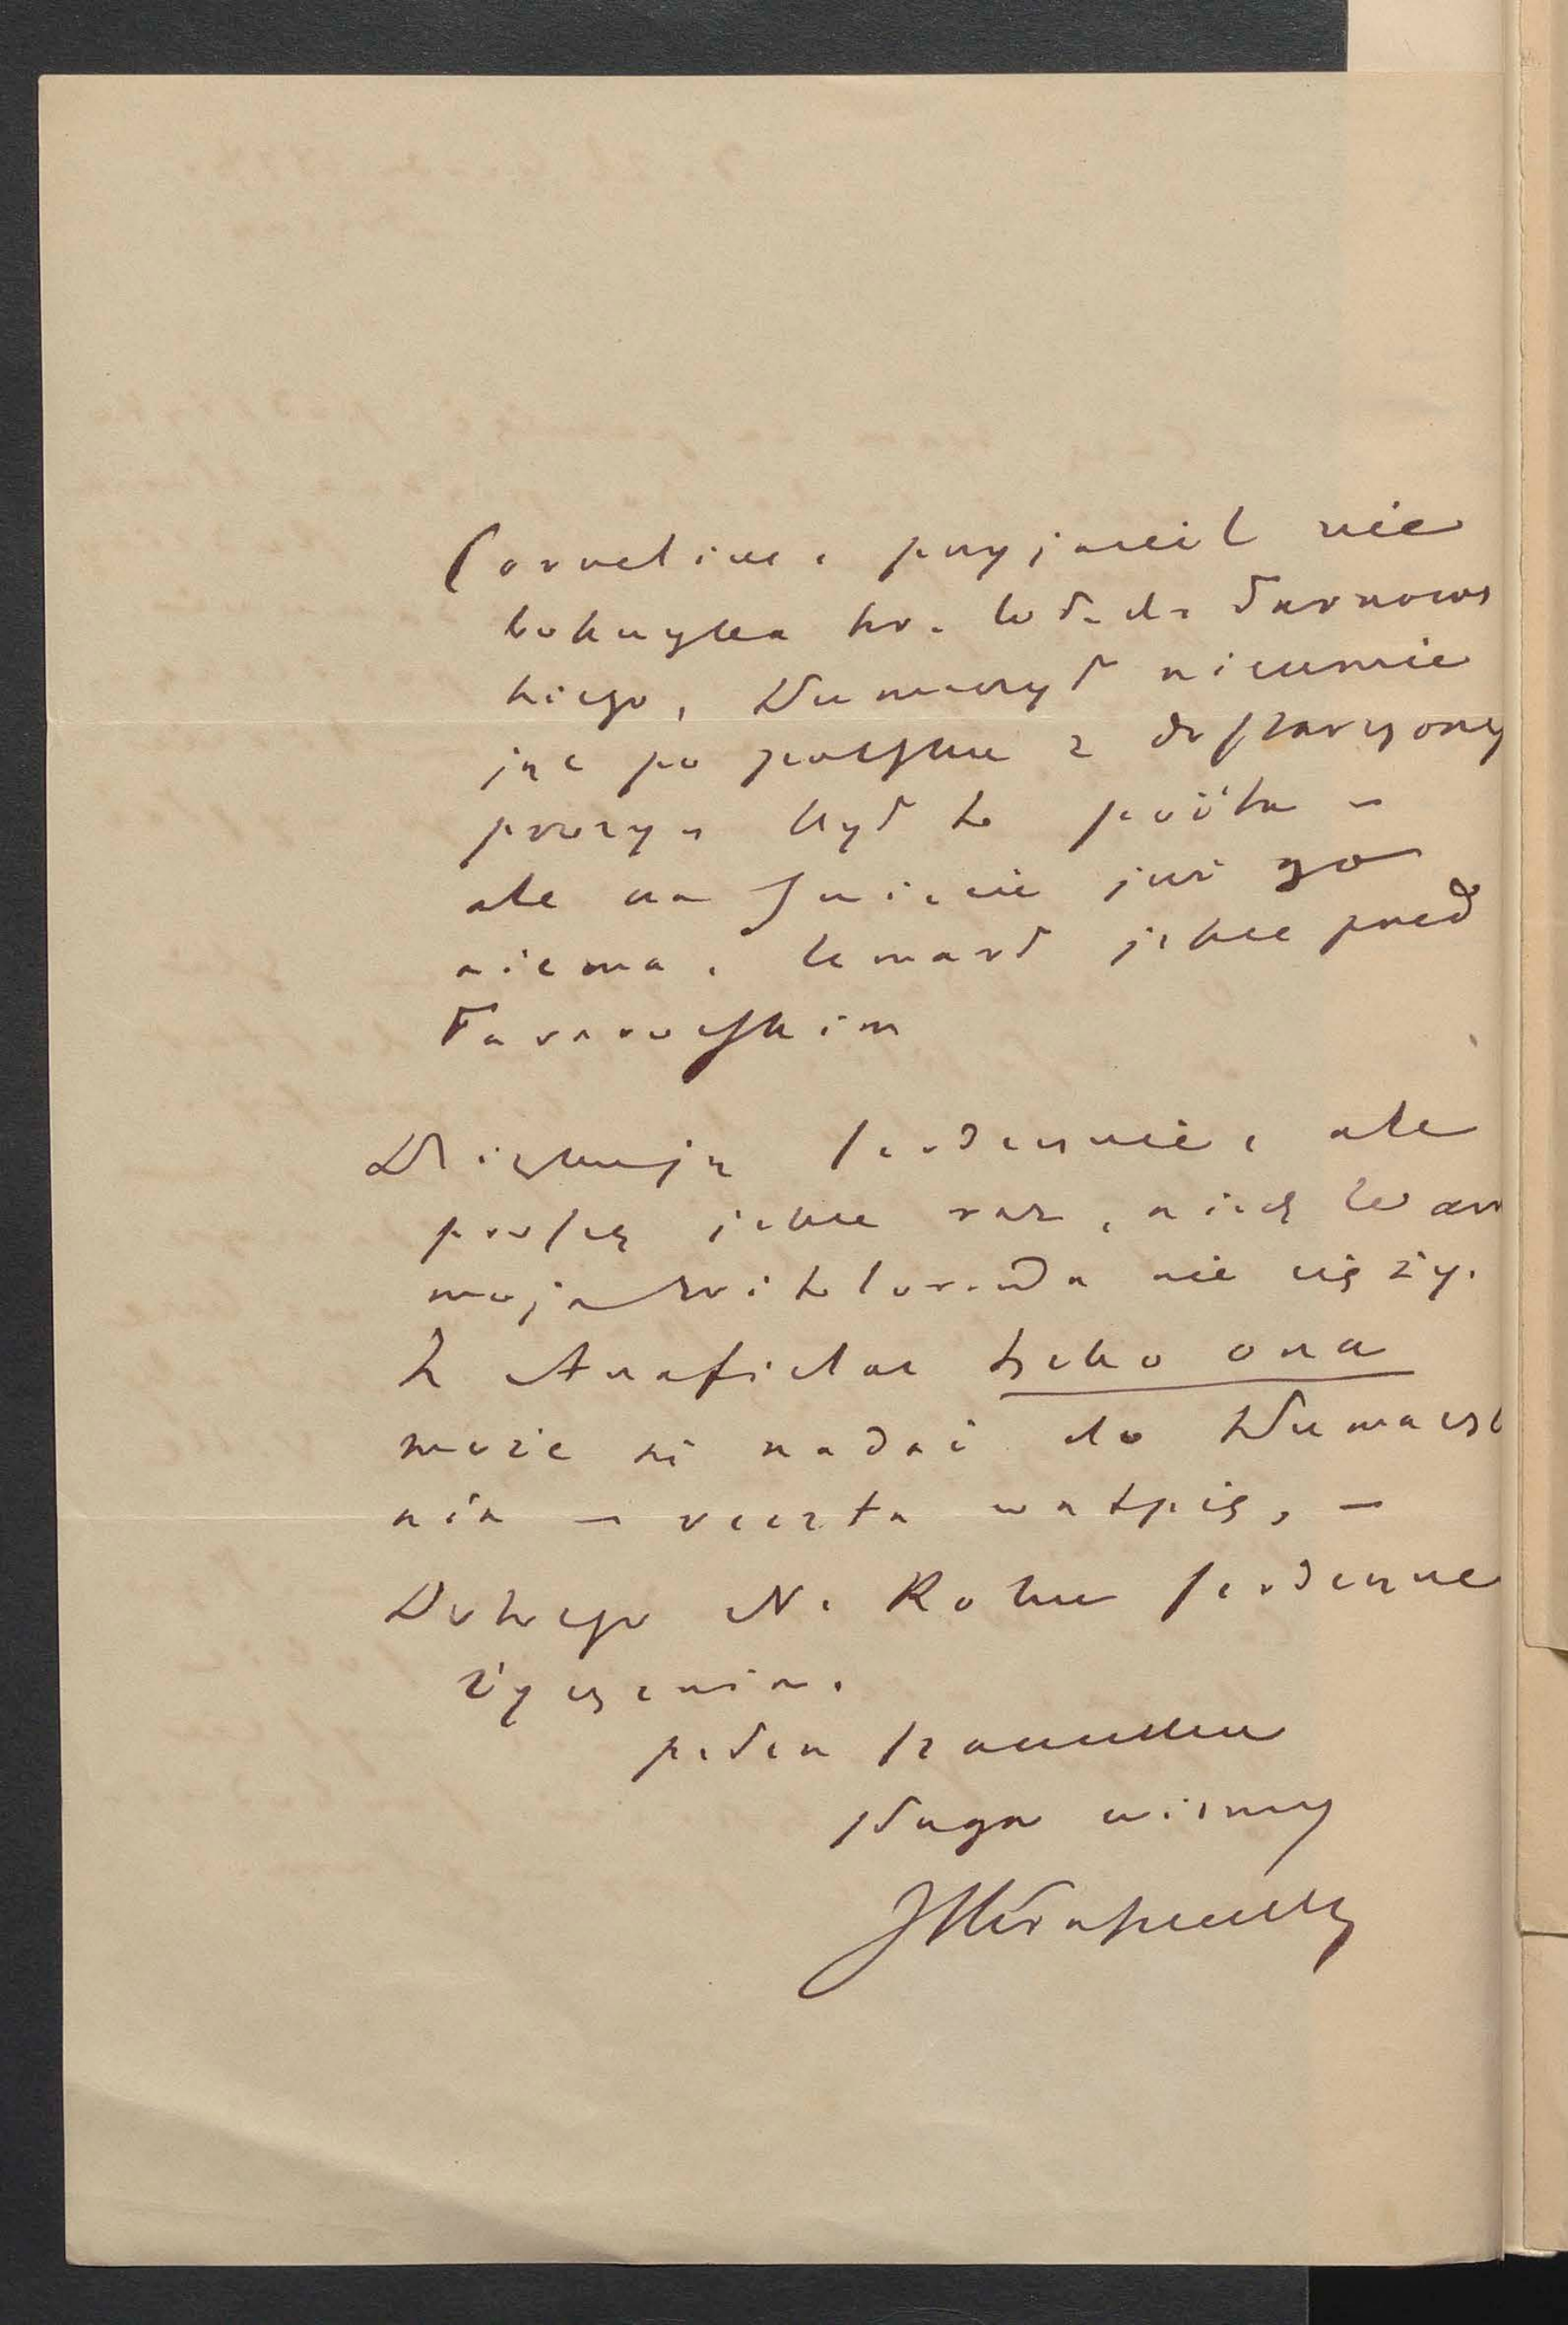 Cornelius, przyjaciel nie
boszczyka hr. Wł. da Tarnows
kiego, tłumaczył nieumie
jąc po polsku z dostarczonej
prozy - był to poëta -
ale na świecie już go
niema. Umarł jeszcze przed
Tarnowskim
Dziękuję serdecznie, ale
proszę jeszcze raz, niech Wam
moja ramota nie cięży.
Z Anafielas tylko ona
może się nadać do tłumacze
nia - reszta wątpię, -
Dosiego N. Roku serdeczne
życzenia.
pełen szacunku
sługa wierny
JIKraszewski